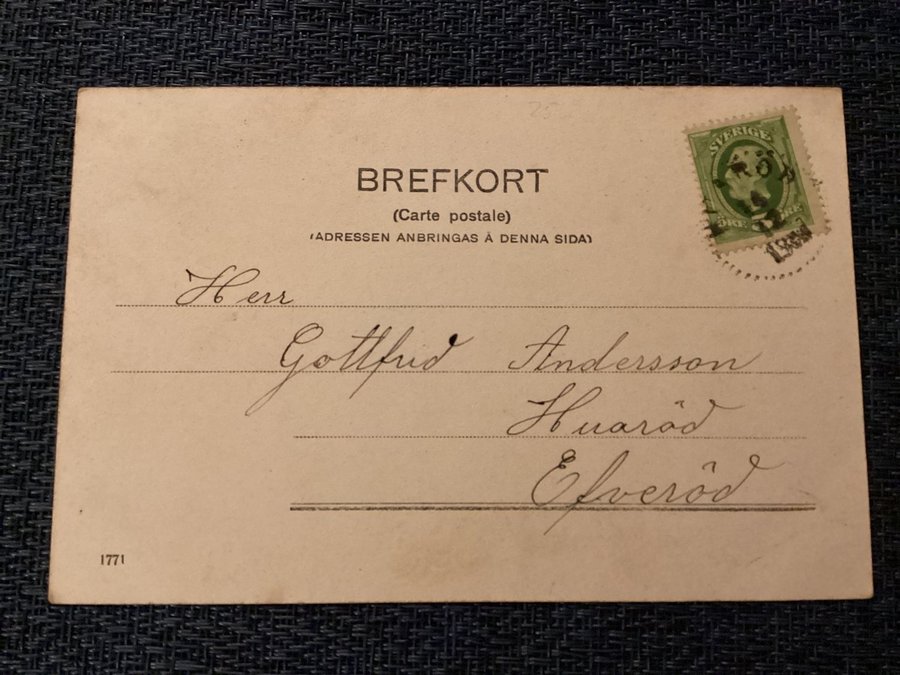 BREFKORT
(Carte postale)
(ADRESSEN ANBRINGAS Å DENNA SIDA)
SVERIGE
5
ÖRE
Herr
Gottfrid Andersson
Huaröd
Efveröd
1771